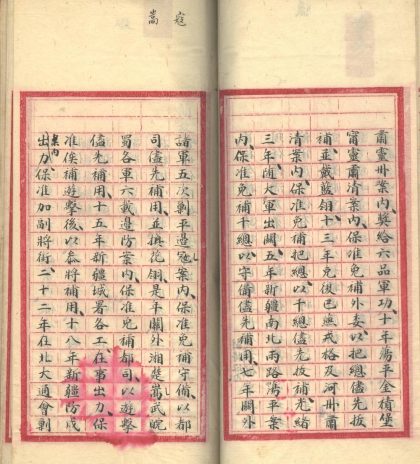 肅靈州案內獎給六品軍功十年蕩平金積堡
甯靈肅清案內保准免補外委以把總儘先拔
補並戴藍翎十三年克復巴燕戎格及河州肅
清案內保准免補把總以千總儘先拔補光緒
三年随大軍出關五年新疆南北兩路蕩平案
內保准免補千總以守備儘先補用七年關外
寇
嵩
諸軍五次剿平邊寇案內保准免補守備以都
司儘先補用並換花翎是年關外湘楚嵩武皖
蜀各軍六載邊防案內保准免補都司以遊擊
儘先補用十五年新疆城署各工在事出力保
准俟補遊擊後以叅將補用十八年新疆防戍
出力案內保准加副將銜二十二年在北大通會剿